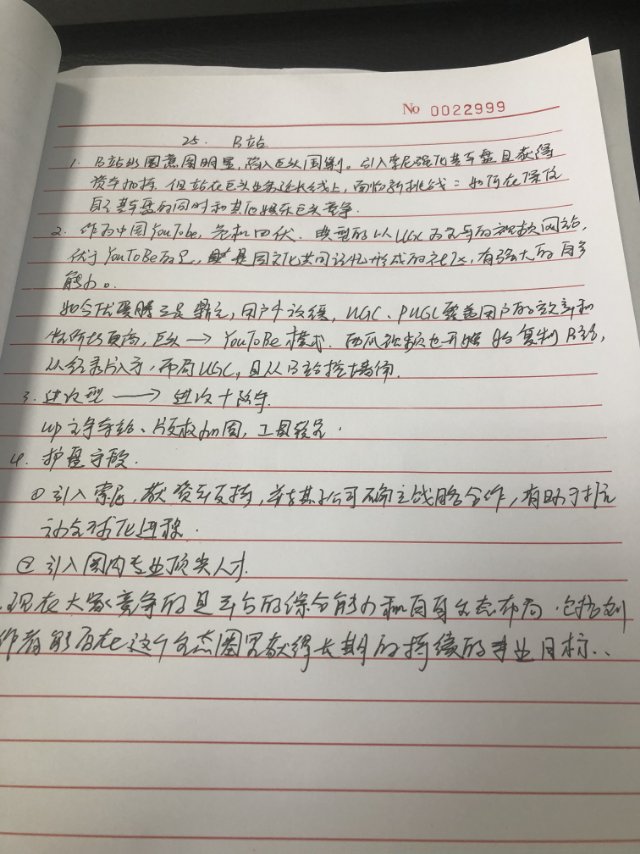 No 0022999
25. B站
1. B站出圈意图明显,陷入巨头围剿。引入索尼强化基本盘且获得
资本加持,但站在巨头业务延长线上,面临新挑战:如何在保住
自己基本盘的同时和其他娱乐巨头竞争。
2. 作为中国YouTube,危机四伏。典型的以UGC为主导的视频网站,
优于YouToBe的是,是圈文化共同记忆形成的社区,有强大的自
能力。
如今优爱腾三足鼎立,用户半设缓,UGC、PUGC 用户的效率和
更高,巨头→YouToBe模式.西瓜视频也开始复制B站,
从纪录片入手,布局UGC,且从B站挖墙角.
3. 进攻型 → 进攻+防守.
up主争夺战、版权加固,工具
4. 护盘守
① 引入索尼,获资本支持,并与其子公司确立战略合作,有助于推
动全球化进程.
② 引入国内专业顶尖人才.
现在大家竞争的是平台的综合能力和自身生态布局.包括创
作者能否在这个生态圈里获得长期的持续的事业目标..